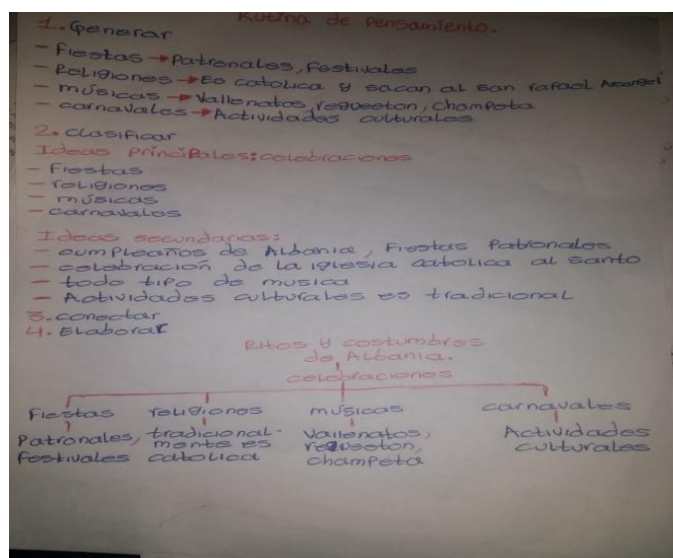 Rutina de Pensamiento.
1. Generar
- Fiestas → Patronales, Festivales
- Religiones → Es catolica y sacan al san rafael Arcangel
- músicas → Vallenatos, regueeton, Champeta
- carnavales → Actividades culturales
2. clasificar
Ideas principales: celebraciones
- Fiestas
- religiones
- músicas
- carnavales
Ideas secundarias:
- cumpleaños de Albania, Fiestas Patronales
- celebración de la iglesia catolica al santo
- todo tipo de musica
- Actividades culturales es tradicional
3. conectar
4. Elaborar
Ritos y costumbres
de Albania.
celebraciones
Fiestas religiones músicas carnavales
Patronales, tradicional- Vallenatos, Actividades
Festivales mente es regueeton, culturales
catolica champeta